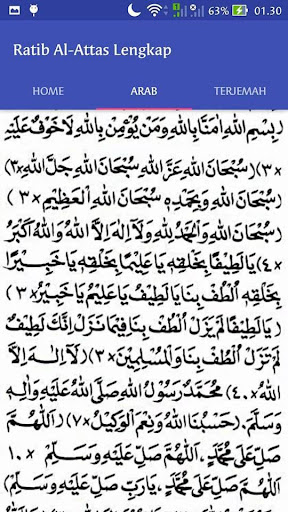 63% 01.30
Ratib Al-Attas Lengkap
HOME ARAB TERJEMAH
(بِسْمِ اللهِ اٰمَنَّا بِاللهِ وَمَنْ يُؤْمِنْ بِاللهِ لَاخَوْفٌ عَلَيْهِ
×٣) (سُبْحَانَ اللهِ عَزَّ اللهُ سُبْحَانَ اللهِ جَلَّ اللهُ ×٣)
(سُبْحَانَ اللهِ وَبِحَمْدِهِ سُبْحَانَ اللهِ الْعَظِيْمِ ×٣)
(سُبْحَانَ اللهِ وَالْحَمْدُ لِلّٰهِ وَلَا اِلٰهَ اِلَّا اللهُ وَاللهُ اَكْبَرُ
×٤) (يَالَطِيْفًا بِخَلْقِهِ يَاعَلِيْمًا بِخَلْقِهِ يَاخَبِيْرًا
بِخَلْقِهِ اُلْطُفْ بِنَا يَالَطِيْفُ يَاعَلِيْمُ يَاخَبِيْرُ ×٣)
(يَالَطِيْفًا لَمْ يَزَلْ اُلْطُفْ بِنَا فِيْمَا نَزَلْ اِنَّكَ لَطِيْفٌ
لَمْ تَزَلْ اُلْطُفْ بِنَا وَالْمُسْلِمِيْنَ ×٣) (لَا اِلٰهَ اِلَّا
اللهُ ×٤٠) مُحَمَّدٌ رَسُوْلُ اللهِ صَلَّى اللهُ عَلَيْهِ وَاٰلِهِ
وَسَلَّمَ. (حَسْبُنَا اللهُ وَنِعْمَ الْوَكِيْلُ ×٧) (اَللّٰهُمَّ
صَلِّ عَلَى مُحَمَّدٍ، اَللّٰهُمَّ صَلِّ عَلَيْهِ وَسَلِّمْ ×١٠
(اَللّٰهُمَّ صَلِّ عَلَى مُحَمَّدٍ، يَارَبِّ صَلِّ عَلَيْهِ وَسَلِّمْ)